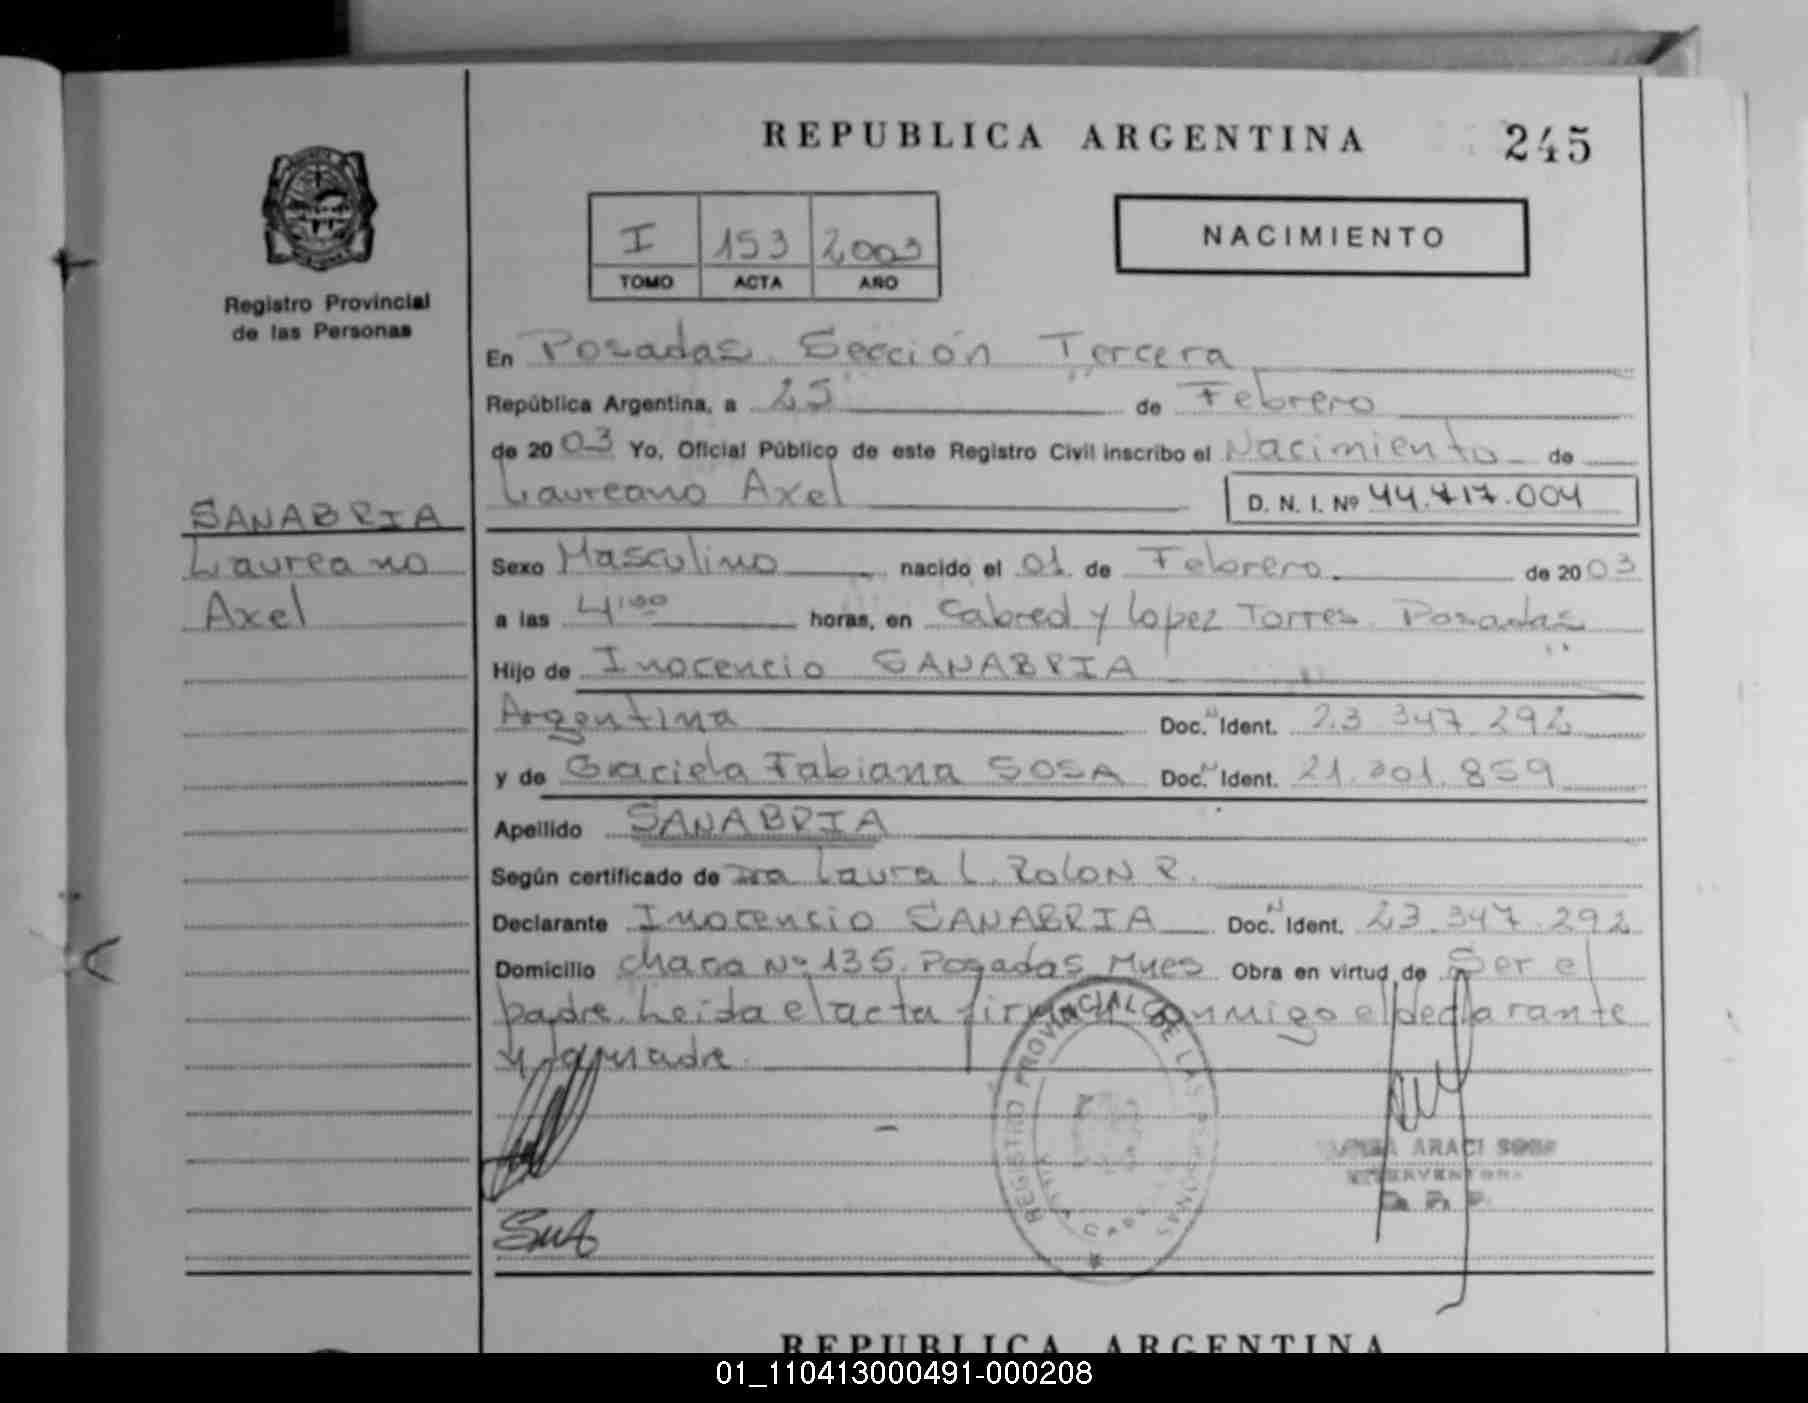 REPUBLICA ARGENTINA
245
Registro Provincial
de las Personas
I 153 2003
TOMO ACTA AÑO
NACIMIENTO
En Posadas Sección Tercera
República Argentina, a 25 de Febrero
de 2003 Yo, Oficial Público de este Registro Civil inscribo el Nacimiento de
Laureano Axel D. N. I. Nº 44.717.004
SANABRIA
Laureano
Axel
Sexo Masculino nacido el 01 de Febrero de 2003
a las 4:00 horas, en Cabred y Lopez Torres Posadas
Hijo de Inocencio SANABRIA
Argentina Doc. Ident. 23.347.292
y de Graciela Fabiana SOSA Doc. Ident. 21.301.859
Apellido SANABRIA
Según certificado de Dra Laura L. Rolon R.
Declarante Inocencio SANABRIA Doc. Ident. 23.347.292
Domicilio chacra Nº 135. Posadas Mnes Obra en virtud de Ser el
padre. Leida el acta firman conmigo el declarante
y la madre.
REGISTRO PROVINCIAL DE LAS PERSONAS
ARACI
REPUBLICA ARGENTINA
01_110413000491-000208